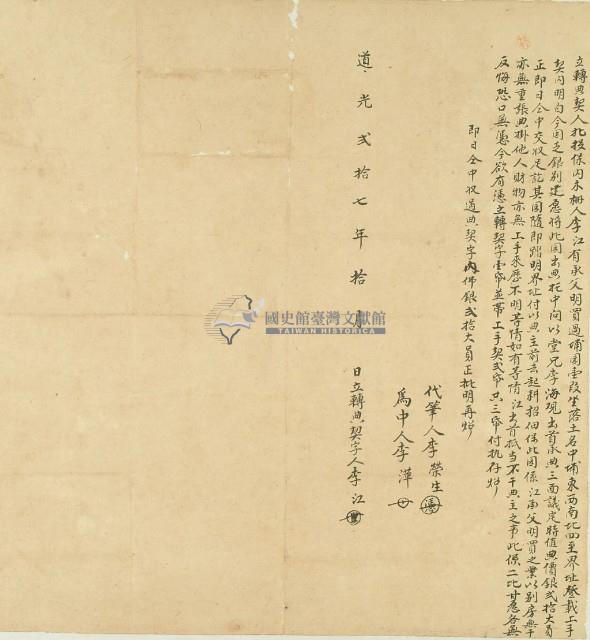 立轉典契人北投保內木柵人李江有承父明買過埔園壹段坐落土名中埔東西南北四至界址登載上手
契內明白今因乏銀別建愿將此園出典托中問以堂兄李海現出首承典三面議定時值典價銀弍拾大員
正即日仝中交收足訖其園隨即踏明界址付以典主前去起耕招佃保此園係江承父明買之業以別房無干
亦無重張典掛他人財物亦無上手來歷不明等情如有等情江出首抵當不干典主之事此係二比甘愿各無
反悔恐口無憑今欲有憑立轉契字壹帋並帶上手契弍帋共三帋付执存炤
即日仝中收過典契字內佛銀弍拾大員正批明再炤
代筆人李榮生
為中人李萍
道光弍拾七年拾月
日立轉典契字人李江
國史館臺灣文獻館
TAIWAN HISTORICA